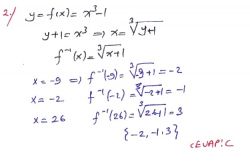 2/ y = f(x) = x³-1
y+1 = x³ ⇒ x = ∛y+1
f⁻¹(x) = ∛x+1
x = -9 ⇒ f⁻¹(-9) = ∛-9+1 = -2
x = -2 f⁻¹(-2) = ∛-2+1 = -1
x = 26 f⁻¹(26) = ∛26+1 = 3
{-2, -1, 3}
CEVAP: C